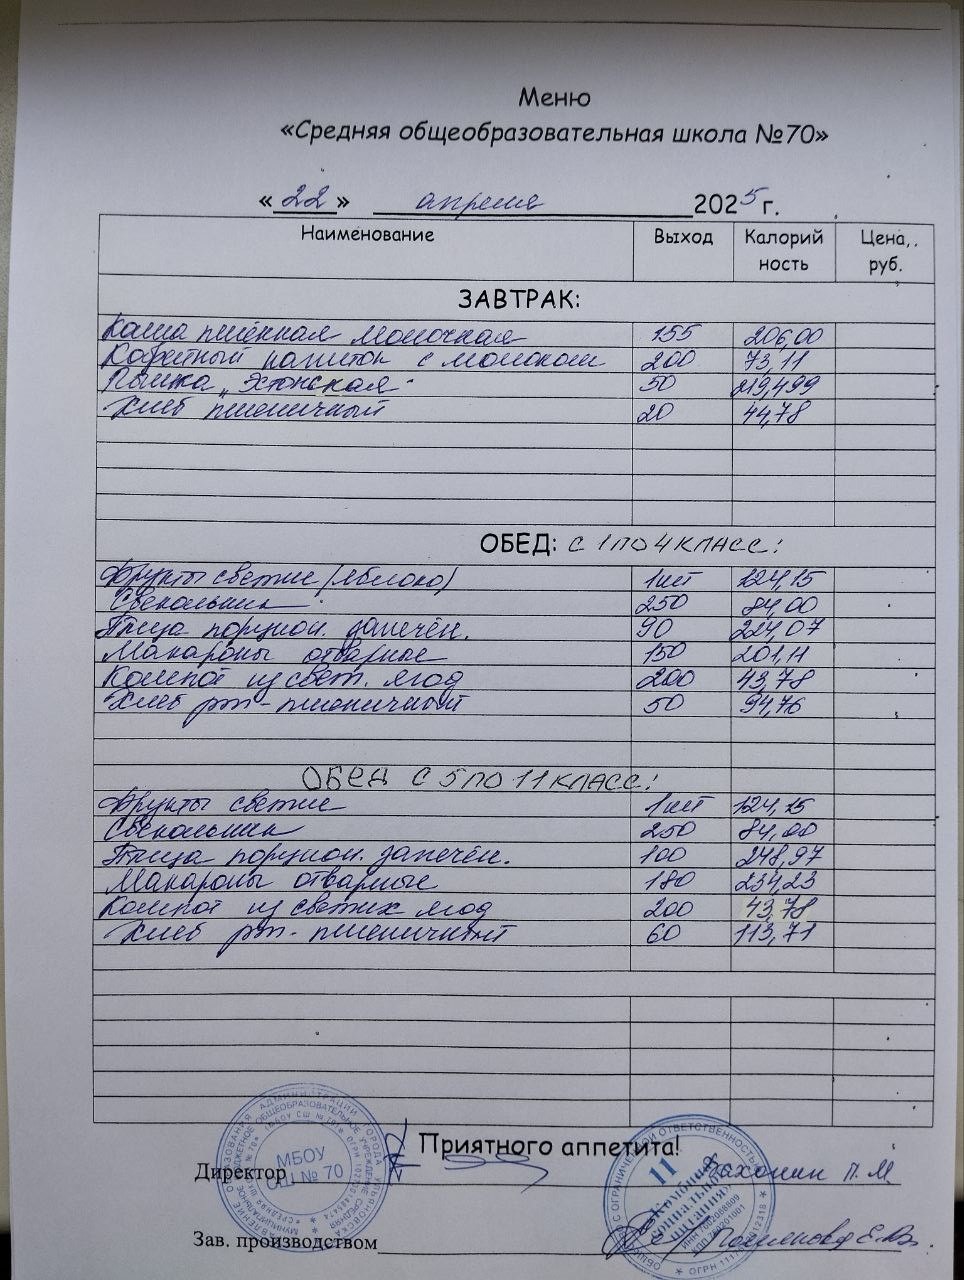 Меню
«Средняя общеобразовательная школа №70»
«22» апреля 2025 г.
Наименование Выход Калорий ность Цена, руб.
ЗАВТРАК:
Каша пшённая молочная 155 206,00
Кофейный напиток с молоком 200 73,11
Пышка „Эстонская" 50 219,499
Хлеб пшеничный 20 44,78
ОБЕД: С 1 ПО 4 КЛАСС:
Фрукты свежие (яблоко) 1шт 124,15
Свекольник 250 84,00
Птица порцион. запечён. 90 224,07
Макароны отварные 150 201,11
Компот из свеж. ягод 200 43,78
Хлеб рж-пшеничный 50 94,76
ОБЕД С 5 ПО 11 КЛАСС:
Фрукты свежие 1шт 124,15
Свекольник 250 84,00
Птица порцион. запечён. 100 248,97
Макароны отварные 180 234,23
Компот из свежих ягод 200 43,78
Хлеб рж.-пшеничный 60 113,71
Приятного аппетита!
МБОУ
СШ № 70
Директор П. М.
11
Комбинат
социального
питания
Зав. производством Е.В.